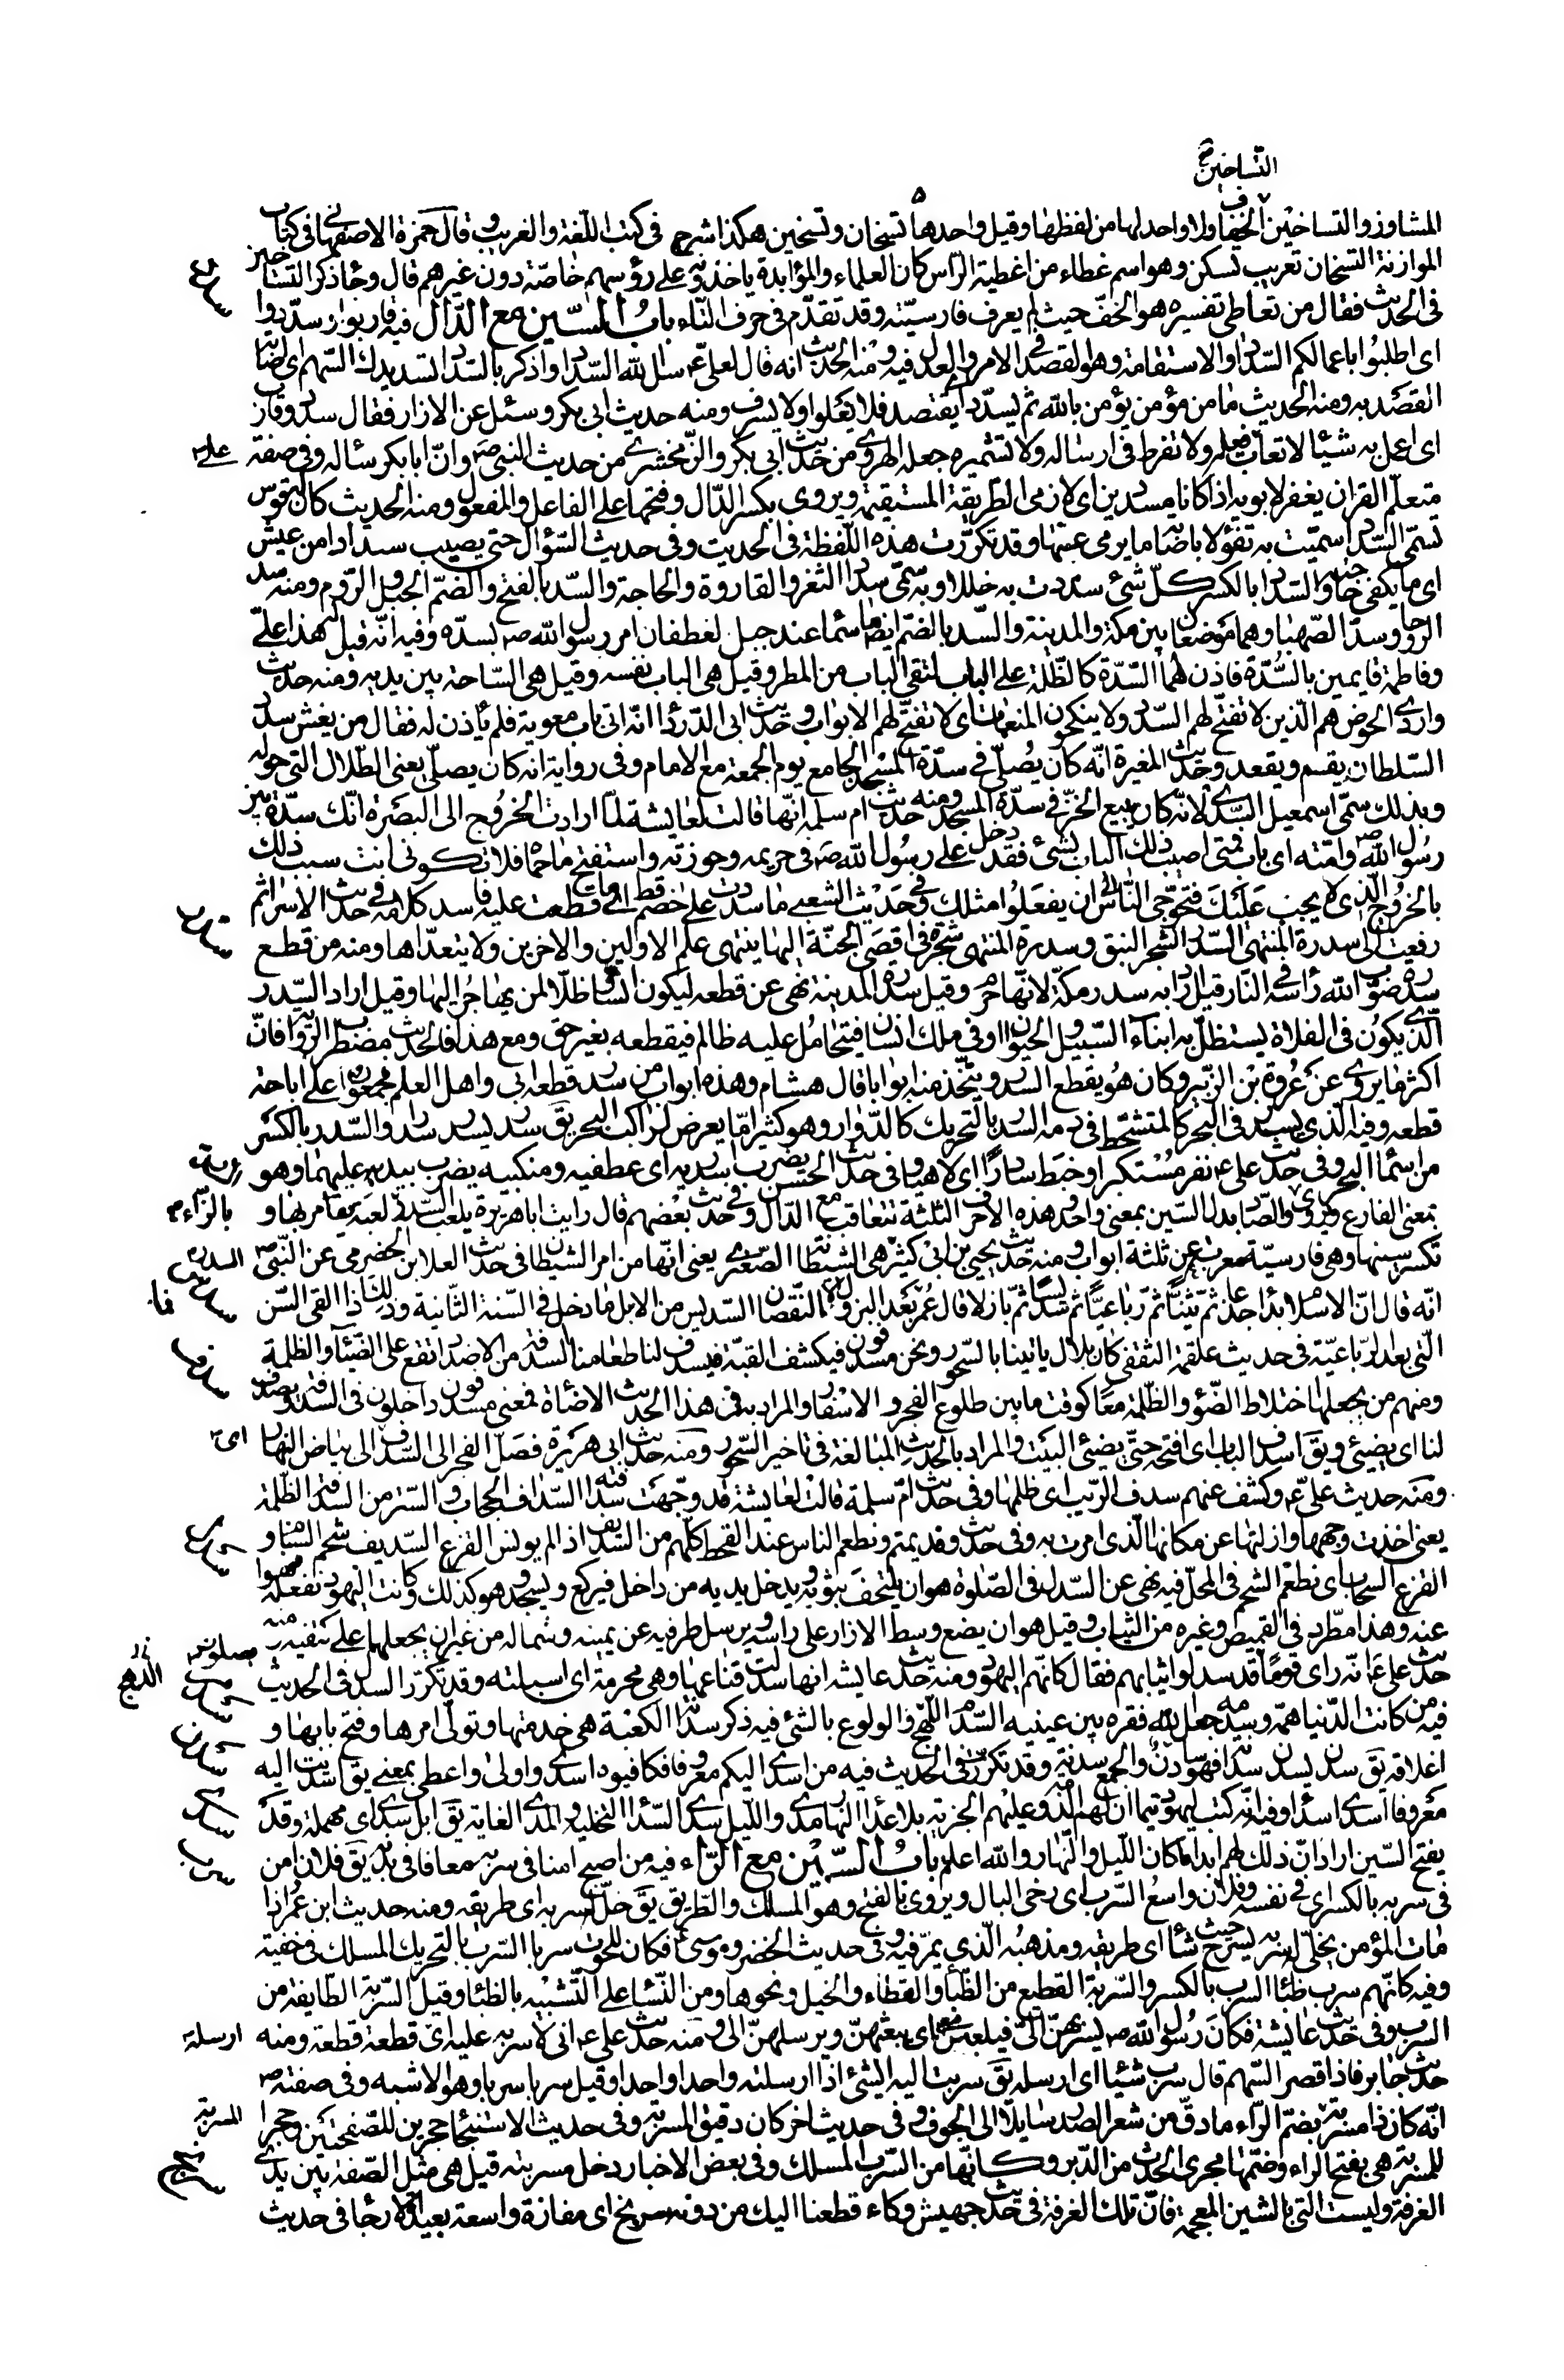 التساخين
المشاوذ والتساخين الخفاف ولا واحد لها من لفظها وقيل واحدها تسخان وتسخين هكذا شرح فى كتب اللّغة والغريب وقال حمزة الاصفهانى فى كتاب
الموازنة التسخان تعريب تسكن وهو اسم غطاء من اغطية الرّاس كان العلماء والمؤابدة ياخذونه على رؤسهم خاصّة دون غيرهم قال وجاء ذكر التساخين
فى الحديث فقال من تعاطى تفسيره هو الخفّ حيث لم يعرف فارسيّته وقد تقدّم فى حرف التّاء باب السّين مع الدّال فيه قاربوا وسدّدوا
اى اطلبوا باعمالكم السّداد والاستقامة وهو القصد فى الامر والعدل فيه ومنه الحديث انه قال لعلىّ ع سل الله السّداد واذكر بالسّداد تسديدك السّهم اى اصابة
القصد به ومنه الحديث ما من مؤمن يؤمن بالله ثم يسدّد اى يقتصد فلا يغلوا ولا يسرف ومنه حديث ابى بكر وسئل عن الازار فقال سدّد وقارب
اى اعمل به شيئا لا تعاب على فعله ولا تفرط فى ارساله ولا تشميره جعله الهروى من حديث ابى بكر والزّمخشرى من حديث النبى ص وانّ ابا بكر سئاله وفى صفة
متعلّم القران يغفر لابويه اذا كانا مسدّدين اى لازمى الطّريقة المستقيمة ويروى بكسر الدّال وفتحها على الفاعل والمفعول ومنه الحديث كان له قوس
تسمّى السّداد سمّيت به تفؤلا باصابة ما يرمى عنها وقد تكرّرت هذه اللّفظة فى الحديث وفى حديث السّؤال حتى يصيب سدادا من عيش
اى ما يكفى حاجته والسّداد بالكسر كلّ شئ سددت به خللا وبه سمّى سداد الثغر والقارورة والحاجة والسّد بالفتح والضمّ الجبل والرّدم ومنه سد
الرّوحا وسدّ الصّهبا وهما موضعان بين مكة والمدينة والسّد بالضمّ ايضا ماء سما عند جبل لغطفان امر رسول الله ص بسدّه وفيه انّه قيل له هذا علىّ
وفاطمة قايمين بالسُّدّة فاذن لهما السّدّة كالظّلّة على الباب لتقى الباب من المطر وقيل هى الباب نفسه وقيل هى السّاحة بين يديه ومنه حديث
واردى الحوض هم الّذين لا تفتح لهم السّدد ولا ينكحون المنعمات اى لا تفتح لهم الابواب وحديث ابى الدّرداء انّه اتى باب معوية فلم يأذن له فقال من يغش سدد
السّلطان يقم ويقعد وحديث المغيرة انّه كان يُصلّى فى سدّة المسجد الجامع يوم الجمعة مع الامام وفى رواية انه كان يصلّى يعنى الظّلال التى حوله
وبذلك سمّى اسمعيل السّدّى لانّه كان يبيع الخمر فى سدّة المسجد ومنه حديث ام سلمه انّها قالت لعايشة لمّا ارادت الخروج الى البصرة انّك سدّة بين
رسول الله ص وامّته اى باب فمتى اصيب ذلك الباب بشئ فقد دخل على رسول الله ص فى حريمه وحوزته واستفتح ما حماه فلا تكونى انت سبب ذلك
بالخروج الّذى لا يجب عليك فتحوجى النّاس الى ان يفعلوا مثلك وفى حديث الشعبى ما سددت على خصم قط اى ما قطعت عليه فاسد كلامه فى حديث الاسراء ثم
رفعت الى سدرة المنتهى السّدر شجر النبق وسدرة المنتهى شجرة فى اقصى الجنّة اليها ينتهى علم الاولين والاخرين ولا يتعدّاها ومنه من قطع
سدرة صوّب الله رأسه فى النّار قيل اراد به سدر مكّة لانّها حرم وقيل سدر المدينة نهى عن قطعه ليكون انسا وظلّا لمن يهاجر اليها وقيل اراد السّدر
الّذى يكون فى الفلاة يستظلّ به ابناء السّبيل والحيوان او فى ملك انسان فيتحامل عليه ظالم فيقطعه بغير حق ومع هذا فالحديث مضطرب الرّواية فانّ
اكثر ما يروى عن عروة بن الزّبير وكان هو يقطع السّدر ويتّخذ منه ابوابا قال هشام وهذه ابواب من سدر قطعه ابى واهل العلم مجمعون على اباحة
قطعه وفيه الّذى يسدر فى البحر كالمتشحّط فى دمه السّدر بالتحريك كالدّوار وهو كثيرا ما يعرض لراكب البحر يق سدر يسدر سدرا والسّدر بالكسر
من اسماء البحر وفى حديث على ع نفر مستكبرا وخبط سادرا اى لاهيا وفى حديث الحسن يضرب اسدريه اى عطفيه ومنكبيه يضرب بيديه عليهما وهو
بمعنى الفارغ ويروى بالزّاء والصّاد بدل السّين بمعنى واحد وهذه الاحرف الثلثة تتعاقب مع الدّال وفى حديث بعضهم قال رايت ابا هريرة يلعب السّدر لعبة يقامر بها و
تكسر سينها وهى فارسيّة معرب عن ثلثة ابواب ومنه حديث يحيى بن ابى كثير هى الشيطانة الصّغرى يعنى انّها من امر الشيطان فى حديث العلا ابن الحضرمى عن النّبى ص
انّه قال انّ الاسلام بدا جذعا ثم ثنيّا ثمّ رباعيّا ثم سديسا ثمّ بازلا قال عمر فما بعد البزول الا النّقصان السّديس من الابل ما دخل فى السّنة الثّانية وذلك اذا القى السّن
الّتى بعد الرّباعيّة فى حديث علقمة الثقفى كان بلال ياتينا بالسّحور ونحن مسدفون فيكشف القبّة فيسدف لنا طعامنا السدفة من الاضداد تقع على الضّياء والظلمة
ومنهم من يجعلها اختلاط الضّؤ والظّلمة معًا كوقت ما بين طلوع الفجر والاسفار والمراد به فى هذا الحديث الاضاءة فمعنى مسدفون داخلون فى السدفة ويسدف
لنا اى يضيئ ويق اسدف الباب اى افتحه حتّى يضيئ البيت والمراد بالحديث المبالغة فى تاخير السّحور ومنه حديث ابى هريرة فصلّ الفجر الى السّدف اى الى بياض النّهار
ومنه حديث على ع وكشف عنهم سدف الرّيب اى ظلمها وفى حديث امّ سلمة قالت لعايشة قد وجّهت سدافته السّدافة الحجاب والسّتر من السدفة الظّلمة
يعنى اخذت وجهها وازلتها عن مكانها الّذى امرت به وفى حديث وفد تميم ونطعم الناس عند القحط كلّهم من السّديف اذا لم يونس القزع السّديف شحم السّنام و
القزع السحاب اى نطعم الشحم فى المحل فيه نهى عن السّدل فى الصّلوة هو ان يلتحف بثوبه ويدخل يديه من داخل فيركع ويسجد وهو كذلك وكانت اليهود تفعله فنهوا
عنه وهذا مطّرد فى القميص وغيره من الثّياب وقيل هو ان يضع وسط الازار على راسه ويرسل طرفيه عن يمينه وشماله من غير ان يجعلهما على كتفيه ومنه
حديث على ع انّه راى قوما قد سدلوا ثيابهم فقال كانّهم اليهود ومنه حديث عايشه انها سدلت قناعها وهى محرمة اى اسبلته وقد تكرّر السدل فى الحديث
فيه من كانت الدّنيا همّه وسدمه جعل الله فقره بين عينيه السّدم اللّهج والولوع بالشئ فيه ذكر سدانة الكعبة هى خدمتها وتولّى امرها وفتح بابها و
اغلاقه يق سدن يسدن سدانة فهو سادن والجمع سدنة وقد تكرّر فى الحديث فيه من اسدى اليكم معروفا فكافيوه اسدى واولى واعطى بمعنى يق اسديت اليه
معروفا اسدى اسداء وفيه انّه كتب ليهود تيما ان لهم الذّمة وعليهم الجزية بلا عداء النّهار مدى واللّيل سدى السّدى التخلية والمدى الغاية يق ابل سدى اى مهملة وقد
يفتح السّين اراد انّ ذلك لهم ابدا ما كان اللّيل والنّهار والله اعلم باب السّين مع الرّاء فيه من اصبح امنا فى سربه معافا فى بدنه يق فلان امن
فى سربه بالكسر اى فى نفسه وفلان واسع السّرب اى رخى البال ويروى بالفتح وهو المسلك والطّريق يق خلّ سربه اى طريقه ومنه حديث ابن عمر اذا
مات المؤمن يخلّى له سربه يسرح حيث شاء اى طريقه ومذهبه الّذى يمرّ فيه وفى حديث الخضر وموسى ع فكان للحوت سربا السّرب بالتحريك المسلك فى خفية
وفيه كانّهم سرب ظباء السرب بالكسر والسّربة القطيع من الظّباء والقطاء والخيل ونحوها ومن النّساء على التّشبيه بالظباء وقيل السّربة الطّايفة من
السرب وفى حديث عايشة فكان رسول الله ص يسرّبهنّ الىّ فيلعبن معى اى يبعثهنّ ويرسلهنّ الىّ ومنه حديث على ع انى لاسربه عليه اى ارسله قطعة قطعة ومنه
حديث جابر فاذا قصر السّهم قال سرب شيئا اى ارسله يق سربت اليه الشئ اذا ارسلته واحدا واحدا وقيل سربا سربا وهو الاشبه وفى صفته ص
انّه كان ذا مسربة بضمّ الرّاء ما دقّ من شعر الصدر سايلا الى الجوف وفى حديث اخر كان دقيق المسربة وفى حديث الاستنجاء حجرين للصّفحتين وحجرا
للمسربة هى بفتح الراء وضمّها مجرى الحدث من الدّبر وكانّها من السّرب المسلك وفى بعض الاخبار دخل مسربته قيل هى مثل الصّفة بين يدى
الغرفة وليست التى بالشين المعجمة فانّ تلك الغرفة فى حديث جهيش وكاء قطعنا اليك من دوية سربخ اى مفازة واسعة بعيدة الارجاء فى حديث